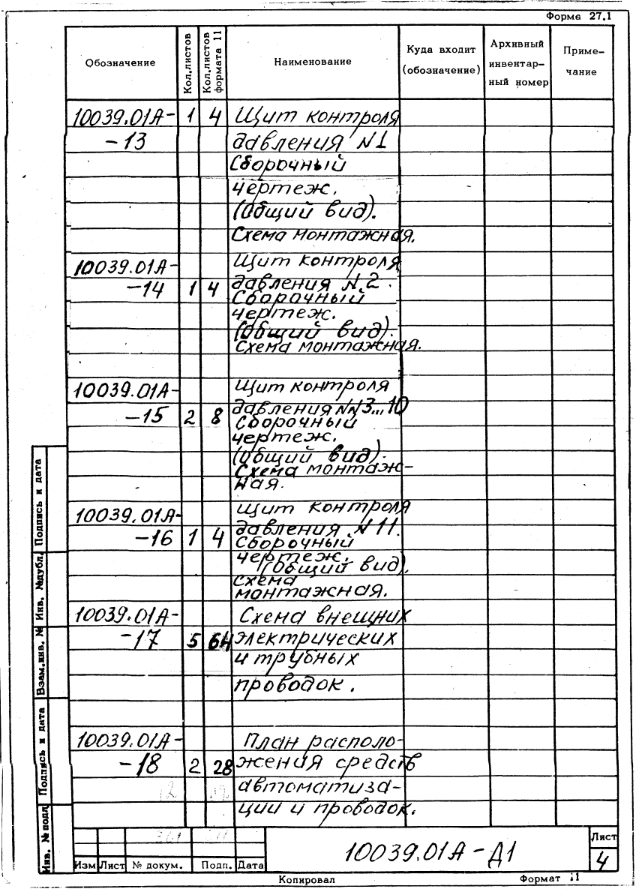 Форма 27.1
Обозначение
Кол.листов
Кол.листов формата 11
Наименование
Куда входит (обозначение)
Архивный инвентар- ный номер
Приме- чание
10039.01А- 1 4 Щит контроля
-13 давления N1
Сборочный
чертеж.
(Общий вид).
Схема монтажная.
10039.01А- Щит контроля
-14 1 4 давления N2.
Сборочный
чертеж.
(Общий вид).
Схема монтажная.
10039.01А- Щит контроля
-15 2 8 давления NN3...10
Сборочный
чертеж.
(Общий вид).
Схема монтаж-
ная.
10039.01А- Щит контроля
-16 1 4 давления N11.
Сборочный
чертеж. (Общий вид).
Схема
монтажная.
10039.01А- Схема внещних
-17 5 64 электрических
и трубных
проводок.
10039.01А- План располо-
-18 2 28 жения средств
автоматиза-
ции и проводок.
Инв. № подл
Подпись и дата
Взам.инв. №
Инв. №дубл.
Подпись и дата
Изм Лист № докум. Подп. Дата
10039.01А-Д1
Лист
4
Копировал
Формат 11